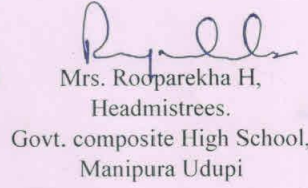 Mrs. Rooparekha H,
Headmistrees.
Govt. composite High School,
Manipura Udupi